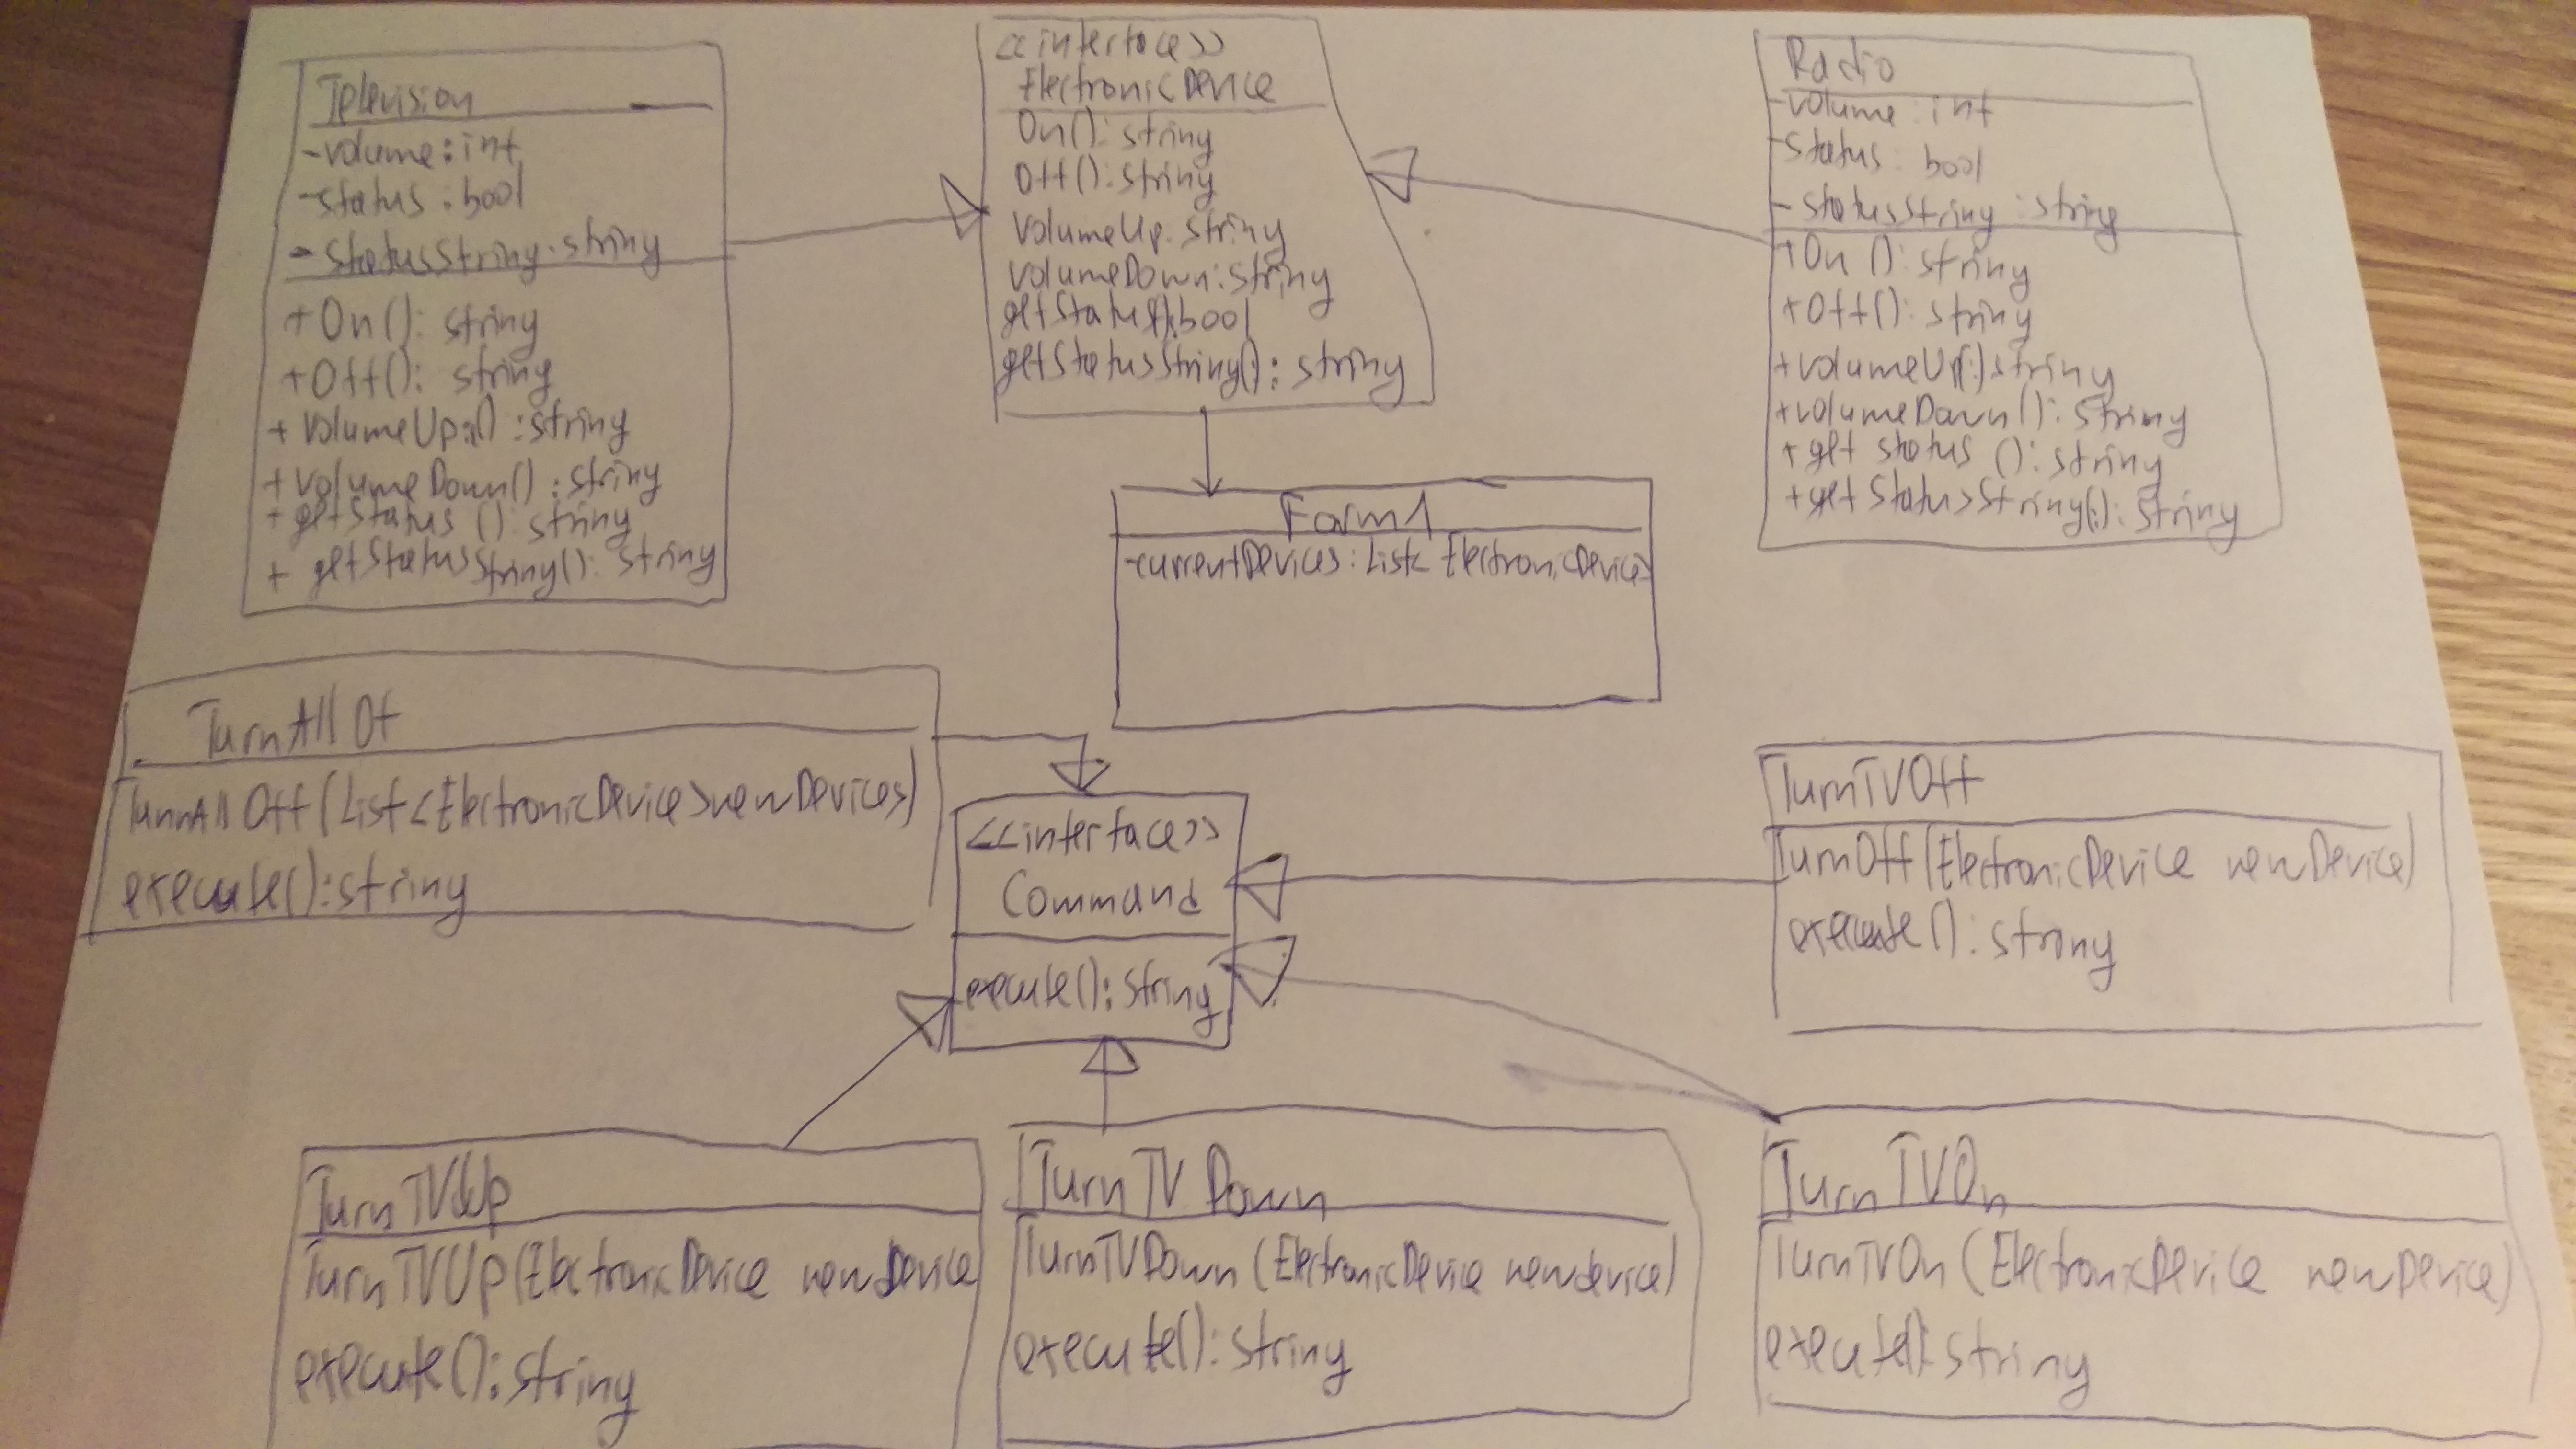 Television
-volume:int
-status:bool
-statusString.string
+On():string
+Off():string
+volumeUp:():string
+volumeDown():string
+getStatus():string
+getStatusString():string
<<interface>>
ElectronicDevice
On():string
Off():string
volumeUp.string
volumeDown:string
getStatus():bool
getStatusString():string
Radio
-volume:int
-status:bool
-statusString:string
+On():string
+Off():string
+volumeUp():string
+volumeDown():string
+get status():string
+getStatusString():string
Form1
-currentDevices:List<ElectronicDevice>
TurnAllOf
TurnAllOff(List<ElectronicDevice>newDevices)
execute():string
<<interface>>
Command
execute():string
TurnTVOff
TurnOff(ElectronicDevice newDevice)
execute():string
TurnTVUp
TurnTVUp(ElectronicDevice newDevice
execute():string
TurnTV Down
TurnTVDown(ElectronicDevice newdevice)
execute():string
TurnTVOn
TurnTVOn(ElectronicDevice newDevice)
execute():string